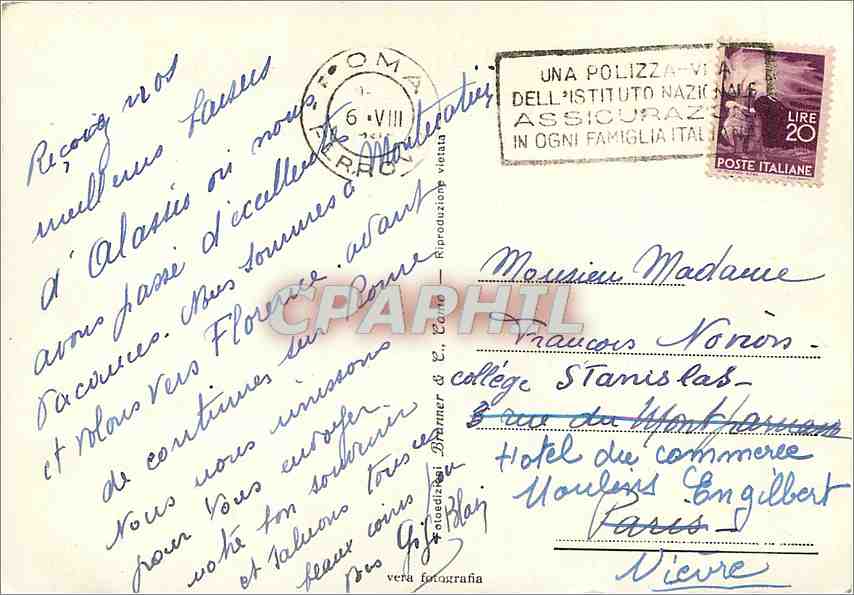 Reçevez nos
meilleurs baisers
d'Alassio où nous
avons passé d'excellentes
vacances. Nous sommes à Montecatini
et volons vers Florence avant
de continuer sur Rome
Nous nous unissons
pour vous envoyer
notre bon souvenir
et saluons tous ces
beaux coins
Gigi
vera fotografia
Fotoedizioni Brunner & C., Como — Riproduzione vietata
ROMA
FERROVIA
6 · VIII
UNA POLIZZA-VITA
DELL'ISTITUTO NAZIONALE
ASSICURAZ
IN OGNI FAMIGLIA ITALIANA
LIRE
20
POSTE ITALIANE
Monsieur Madame
François Noviors -
collège Stanislas -
3 rue du Montparnasse
Hotel du commerce
Moulins Engilbert
Paris -
Nièvre
CPAPHIL